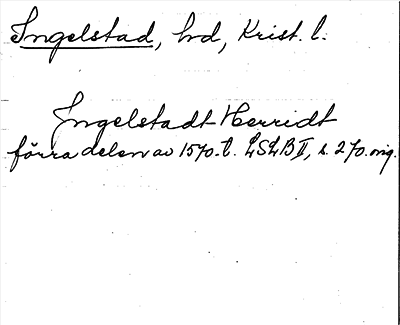 Ingelstad, hd, Krist. l.
Jngelstadt Herridt
förra delen av 1570.t. LSLB II, s. 270. orig.